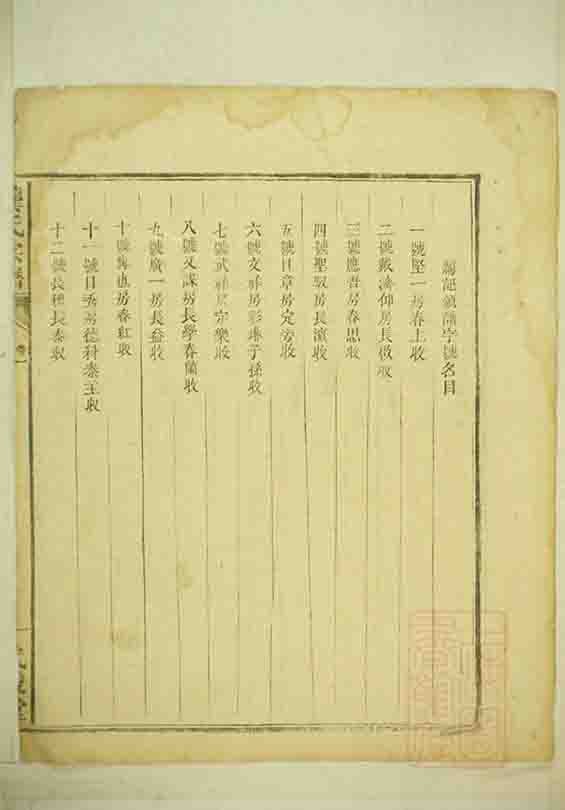 領譜字號名目
一號堅一房春上收
二號戴濤仰房長微收
三號應晋房春思收
四號聖叙房長演收
五號日章房定芳收
六號文祥房彩琳子孫收
七號武祥房宗樂收
八號文謀房長學春蘭收
九號廣一房長益收
十號海也房春紅收
十一號日秀房德科泰玉收
十二號長穗長泰收
氏宗譜